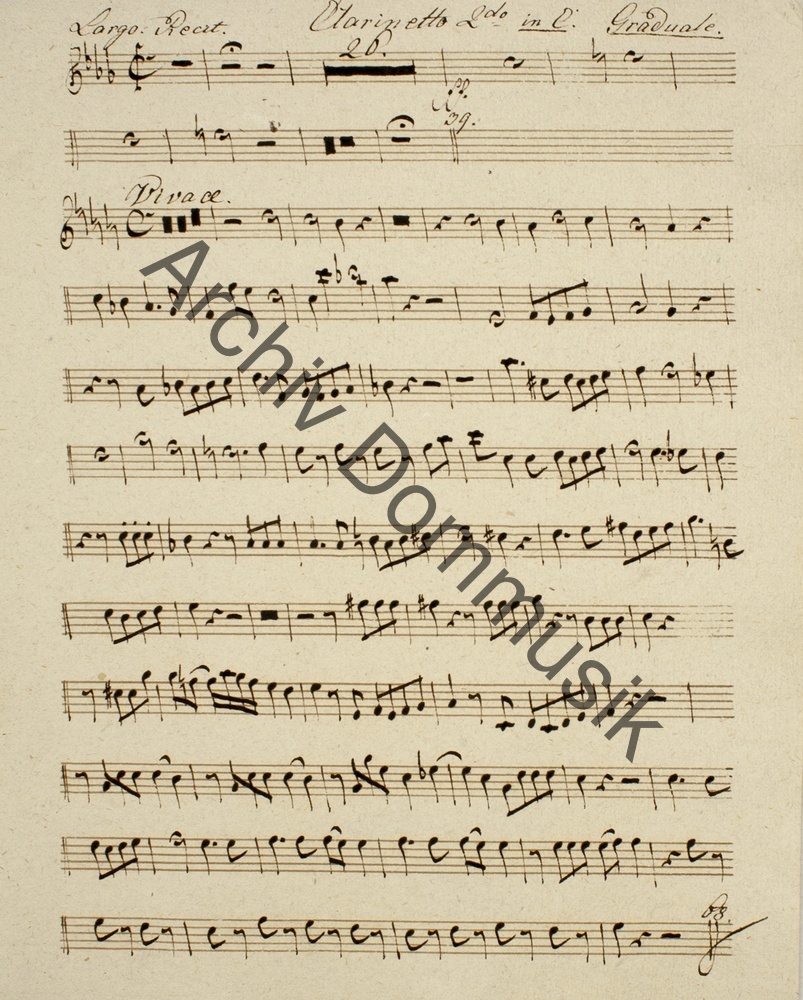 Largo. Recit. Clarinetto 2do in C. Graduale.
26.
39.
Vivace.
Archiv Dommusik
68.